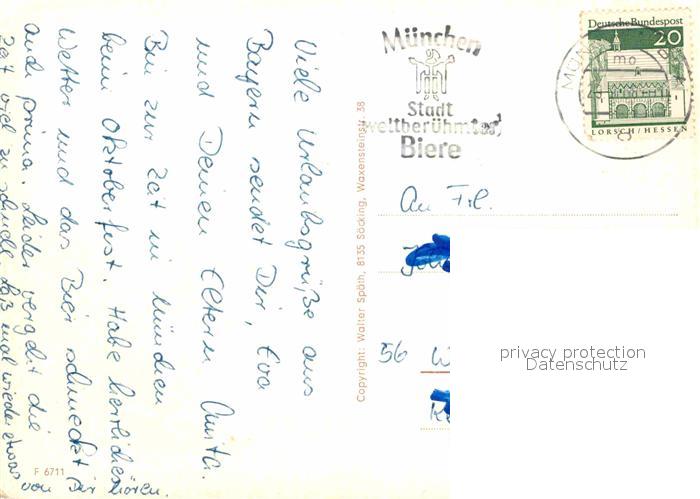 Viele Urlaubsgrüße aus
Bayern sendet Dir, Eva
und Deinen Eltern Anita.
Bin zur Zeit in München
beim Oktoberfest. Habe herrliches
Wetter und das Bier schmeckt
auch prima. Leider vergeht die
Zeit viel zu schnell. Laß mal wieder etwas
von Dir hören.
F 6711
Copyright: Walter Späth, 8135 Söcking, Waxensteinstr. 38
München
Stadt
weltberühmter
Biere
Deutsche Bundespost
20
LORSCH/HESSEN
An Frl.
56 W
privacy protection
Datenschutz